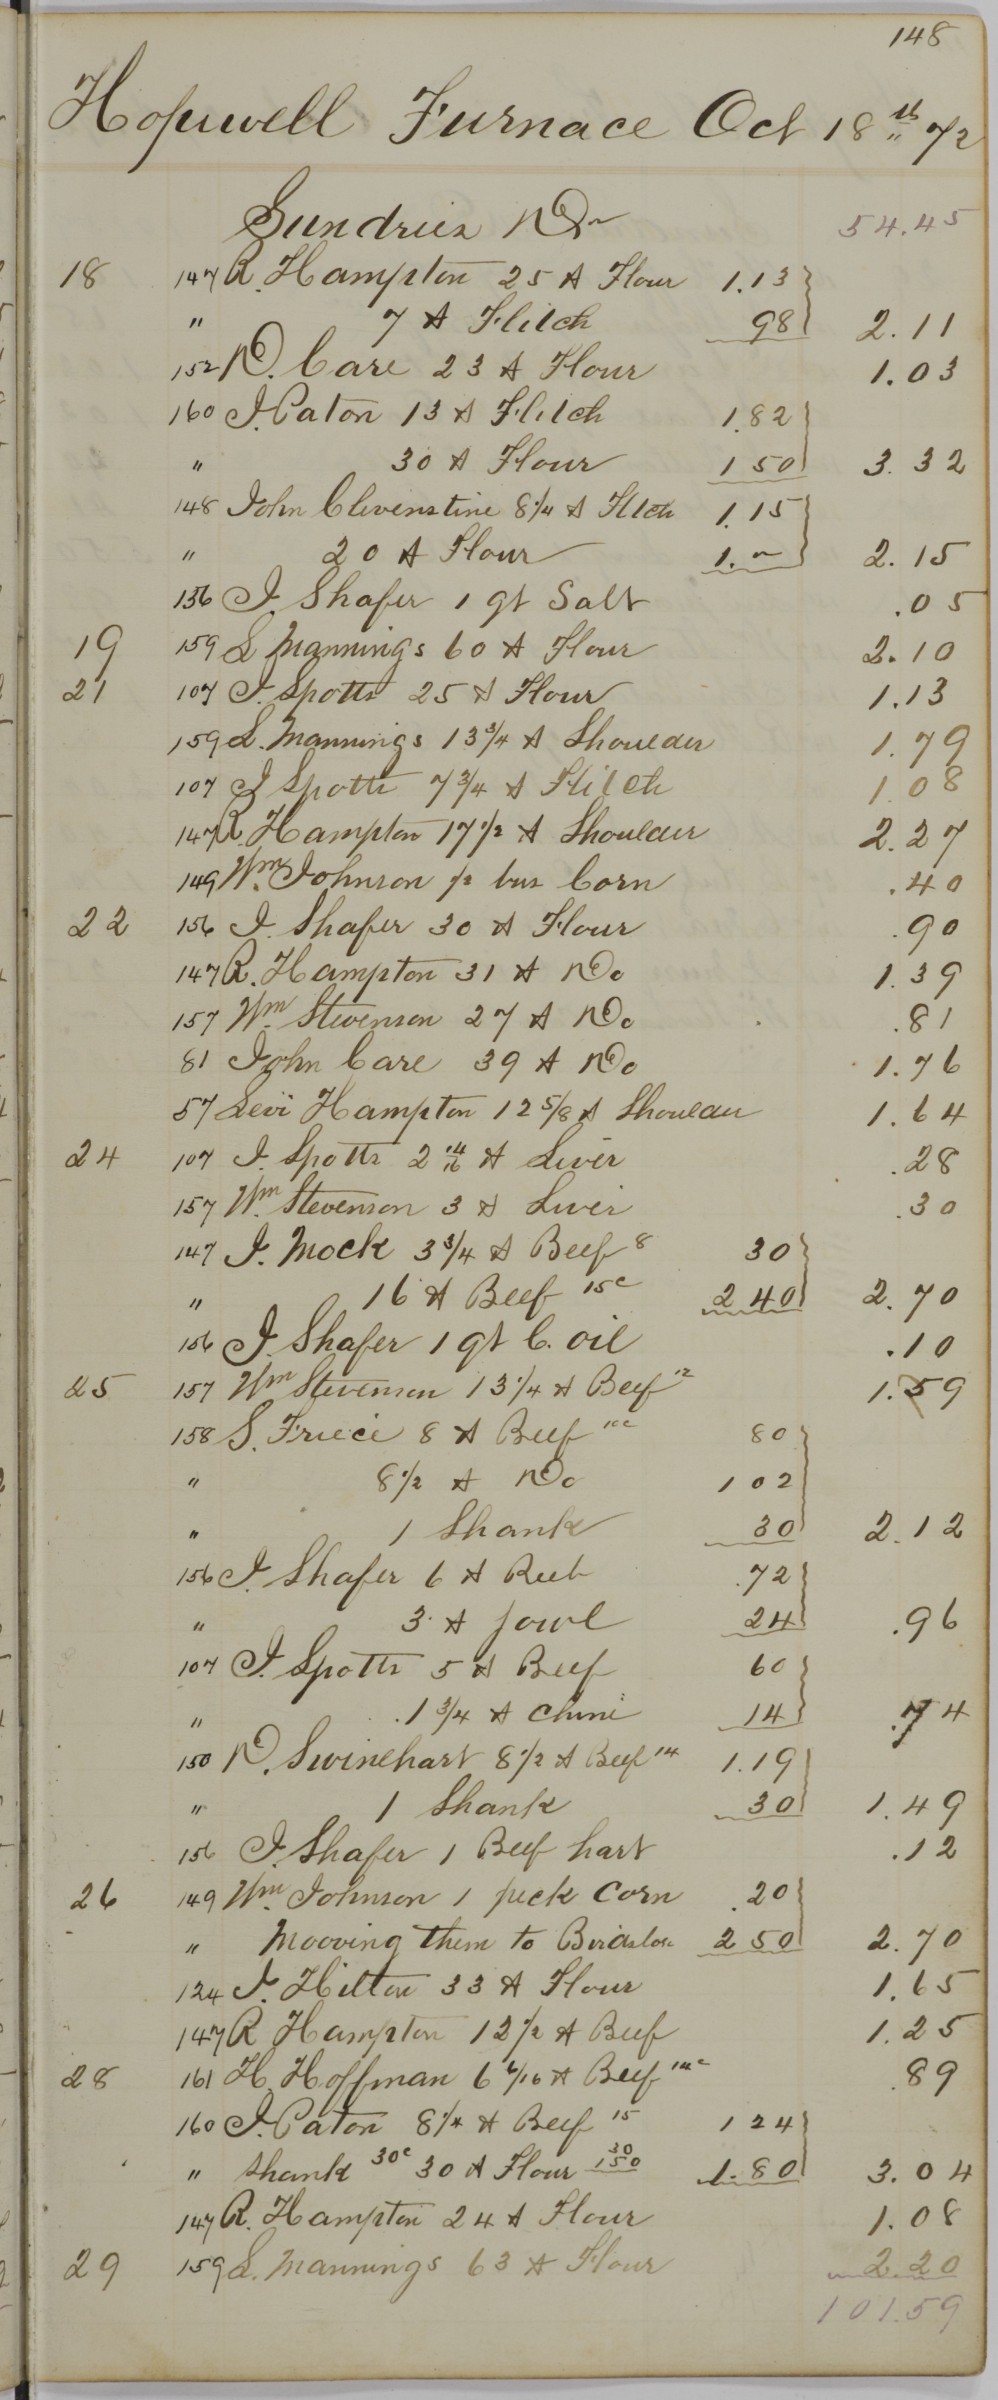 148
Hopewell Furnace Oct 18th 72
Sundries Dr 54.45
18 147 R. Hampton 25 # Flour 1.13
" 7 # Flitch 98 2.11
152 D. Care 23 # Flour 1.03
160 J. Paton 13 # Flitch 1.82
" 30 # Flour 1 50 3.32
148 John Clevenstine 8 1/4 # Flitch 1.15
" 20 # Flour 1.~ 2.15
156 J. Shafer 1 qt Salt .05
19 159 L Mannings 60 # Flour 2.10
21 107 J. Spotts 25 # Flour 1.13
159 L. Mannings 13 3/4 # Shoulder 1.79
107 J Spotts 7 3/4 # Flitch 1.08
147 R. Hampton 17 1/2 # Shoulder 2.27
149 Wm. Johnson 1/2 bus Corn .40
22 156 J. Shafer 30 # Flour .90
147 R. Hampton 31 # Do 1.39
157 Wm. Stevenson 27 # Do .81
81 John Care 39 # Do 1.76
57 Levi Hampton 12 5/8 # Shoulder 1.64
24 107 J. Spotts 2 14/16 # Liver .28
157 Wm. Stevenson 3 # Liver .30
147 J. Mock 3 3/4 # Beef 8 30
" 16 # Beef 15c 2 40 2.70
156 J. Shafer 1 qt C. oil .10
25 157 Wm Stevenson 13 1/4 # Beef 12 1.59
158 S. 8 # Beef 10c 80
" 8 1/2 # Do 1 02
" 1 Shank 30 2.12
156 J. Shafer 6 # .72
" 3 # Jowl 24 .96
107 J. Spotts 5 # Beef 60
" 1 3/4 # Chine 14 .74
150 D. Swinehart 8 1/2 # Beef 14 1.19
" 1 Shank 30 1.49
156 J. Shafer 1 Beef hart .12
26 149 Wm. Johnson 1 peck Corn .20
" Mooving them to 2 50 2.70
124 J. Hilton 33 # Flour 1.65
147 R Hampton 12 1/2 # Beef 1.25
28 161 H. Hoffman 6 6/16 # Beef 14c .89
160 J. Paton 8 1/4 # Beef 15 1 24
" Shank 30c 30 # Flour 30 1 50 1.80 3.04
147 R. Hampton 24 # Flour 1.08
29 159 L. Mannings 63 # Flour 2.20
101.59